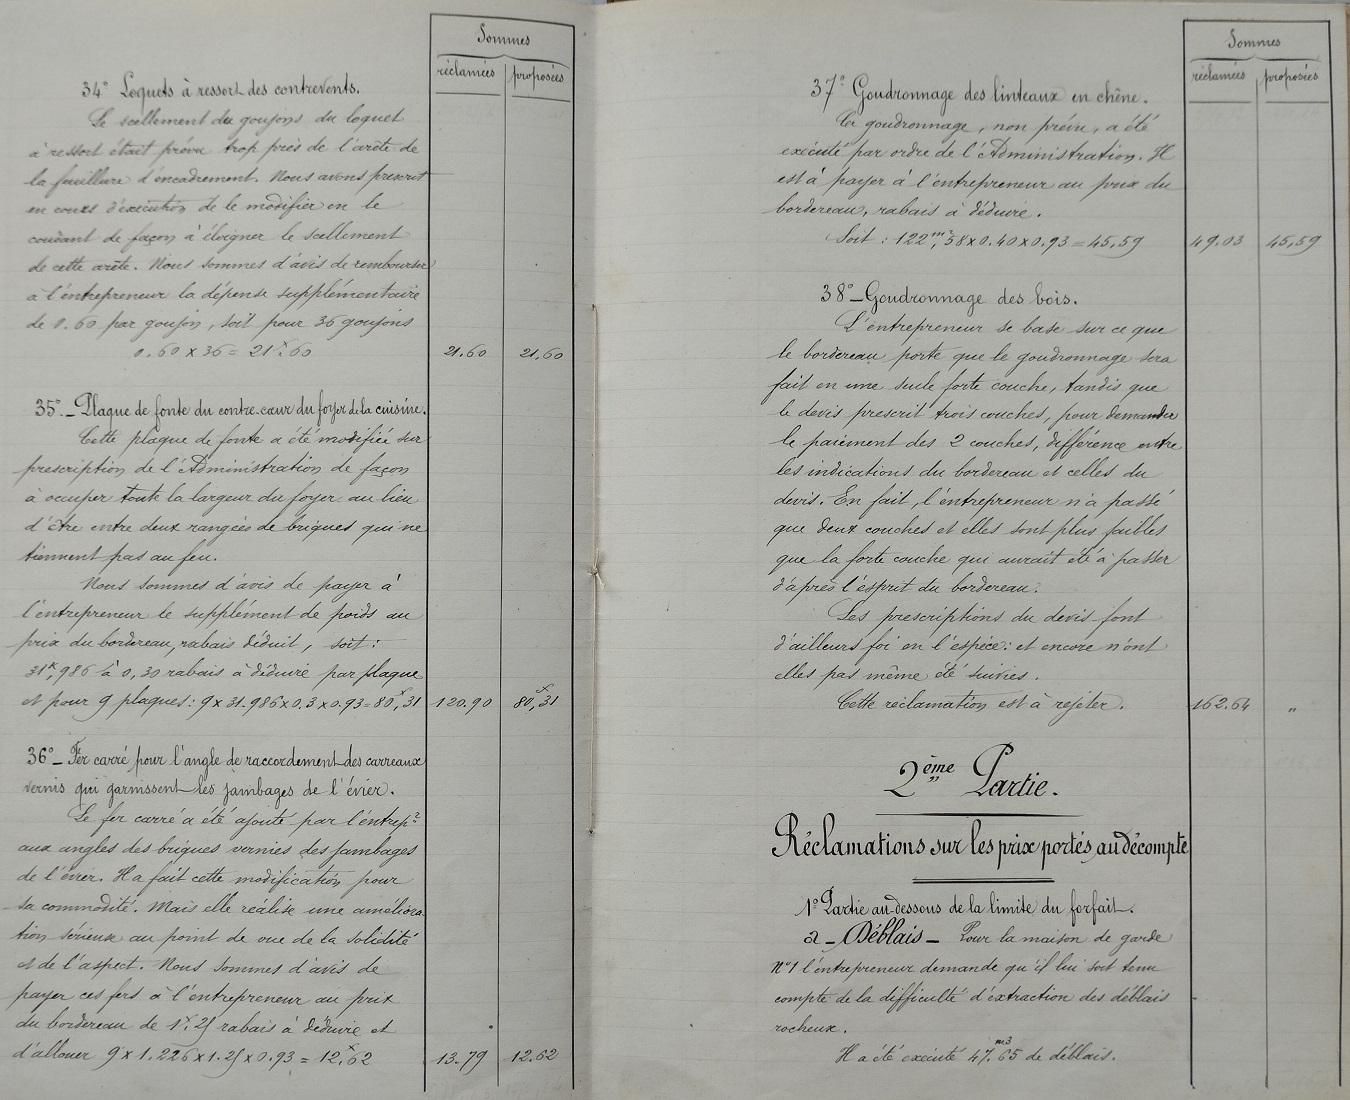 Sommes
réclamées proposées
34° Loquets à ressort des contrevents.
Le scellement du goujons du loquet
à ressort était prévu trop près de l'arête de
la feuillure d'encadrement. Nous avons prescrit
en cours d'exécution de le modifier en le
coudant de façon à éloigner le scellement
de cette arête. Nous sommes d'avis de rembourser
à l'entrepreneur la dépense supplémentaire
de 0.60 par goujon, soit pour 36 goujons
0.60 x 36 = 21f.60 21.60 21.60
35°_ Plaque de fonte du contre-cœur du foyer de la cuisine.
Cette plaque de fonte a été modifiée sur
prescription de l'Administration de façon
à occuper toute la largeur du foyer au lieu
d'être entre deux rangées de briques qui ne
tiennent pas au feu.
Nous sommes d'avis de payer à
l'entrepreneur le supplément de poids au
prix du bordereau, rabais déduit, soit :
31k,986 à 0,30 rabais à déduire par plaque
et pour 9 plaques : 9 x 31.986 x 0.3 x 0.93 = 80f,31 120.90 80f,31
36°_ Fer carré pour l'angle de raccordement des carreaux
vernis qui garnissent les jambages de l'évier.
Le fer carré a été ajouté par l'entrepr
aux angles des briques vernies des jambages
de l'évier. Il a fait cette modification pour
sa commodité. Mais elle réalise une améliora-
tion sérieuse au point de vue de la solidité
et de l'aspect. Nous sommes d'avis de
payer ces fers à l'entrepreneur au prix
du bordereau de 1f.25 rabais à déduire et
d'allouer 9 x 1.226 x 1.25 x 0.93 = 12f.62 13.79 12.62
Sommes
réclamées proposées
37° Goudronnage des linteaux en chêne.
Ce goudronnage, non prévu, a été
exécuté par ordre de l'Administration. Il
est à payer à l'entrepreneur au prix du
bordereau, rabais à déduire.
Soit : 122m²,58 x 0.40 x 0.93 = 45,59 49.03 45,59
38°_ Goudronnage des bois.
L'entrepreneur se base sur ce que
le bordereau porte que le goudronnage sera
fait en une seule forte couche, tandis que
le devis prescrit trois couches, pour demander
le paiement des 2 couches, différence entre
les indications du bordereau et celles du
devis. En fait, l'entrepreneur n'a passé
que deux couches et elles sont plus faibles
que la forte couche qui aurait été à passer
d'après l'esprit du bordereau.
Les prescriptions du devis font
d'ailleurs foi en l'espèce : et encore n'ont
elles pas même été suivies.
Cette réclamation est à rejeter. 162.64 "
2ème Partie.
Réclamations sur les prix portés au décompte
1° Partie au-dessous de la limite du forfait.
a _ Déblais _ Pour la maison de garde
N°1 l'entrepreneur demande qu'il lui soit tenu
compte de la difficulté d'extraction des déblais
rocheux.
Il a été exécuté 47.m3 65 de déblais.